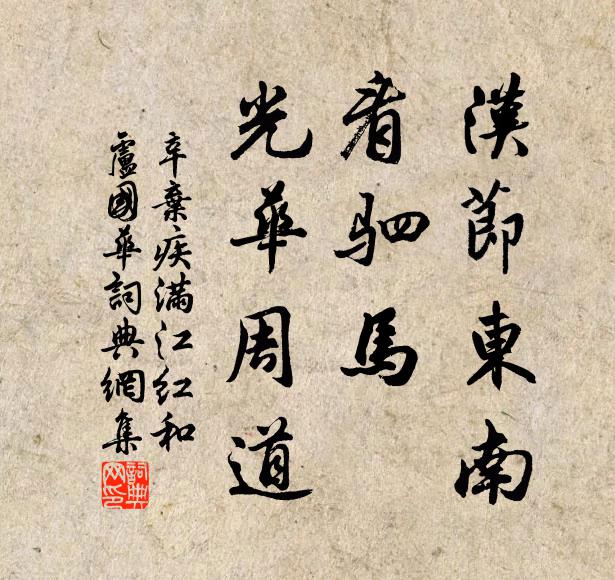 漢節東南
看駟馬
光華周道
辛棄疾滿江紅和
盧國華詞典網集
詞典網印